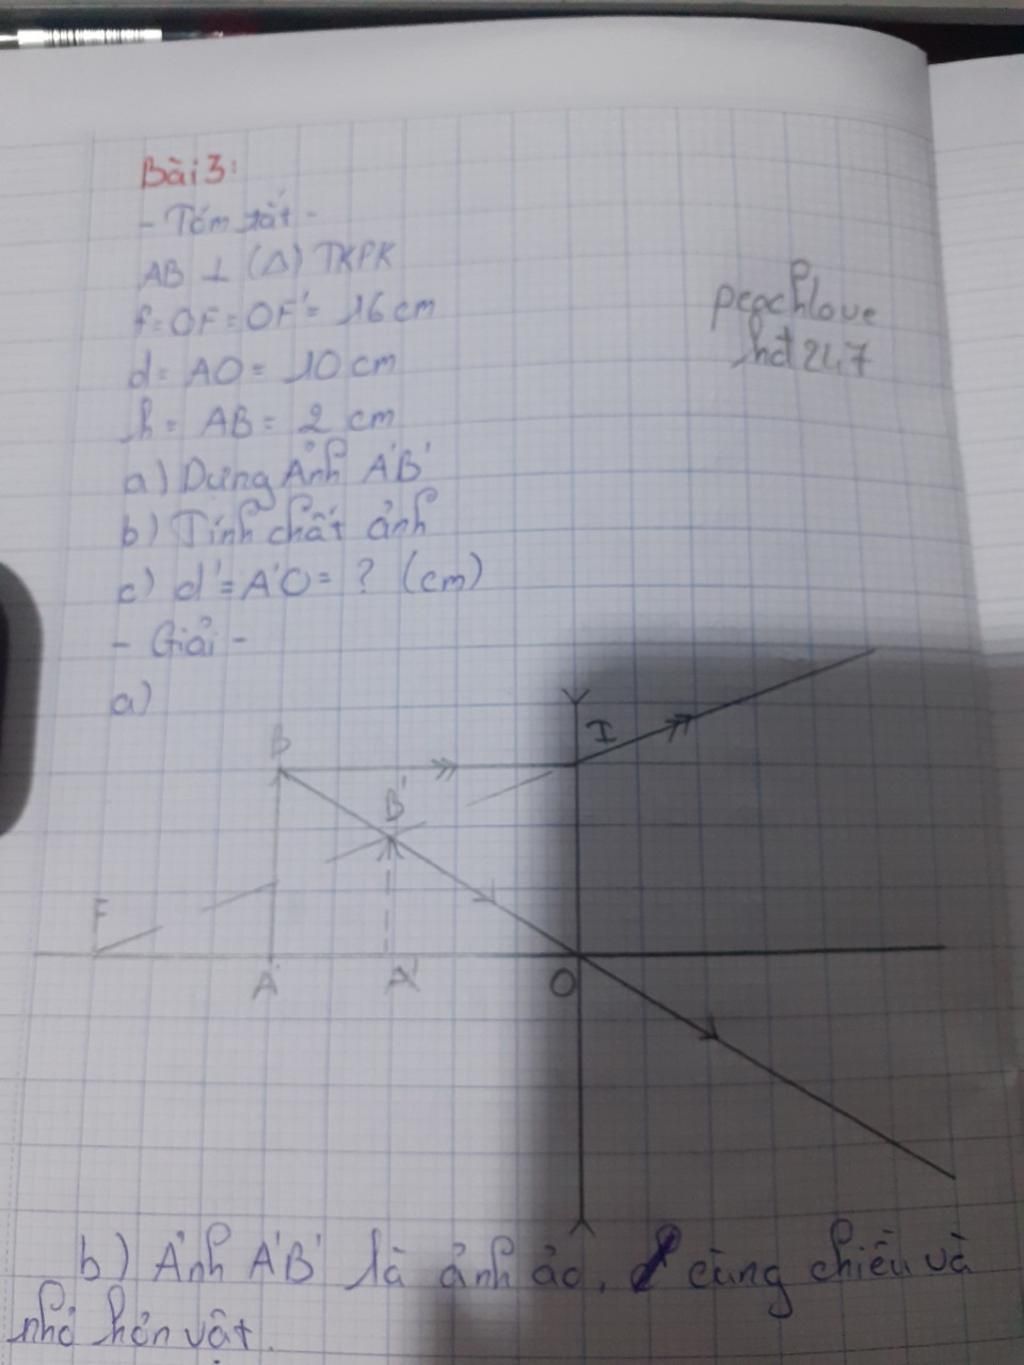 Bài 3:
- Tóm tắt -
AB ⊥ (Δ) TKPK
f = OF = OF' = 16 cm
d = AO = 10 cm
h = AB = 2 cm
peachlove
hđ 247
a) Dựng Ảnh A'B'
b) Tính chất ảnh
c) d' = A'O = ? (cm)
- Giải -
a)
I
B
B'
F
A
A'
O
b) Ảnh A'B' là ảnh ảo, cùng chiều và
nhỏ hơn vật.